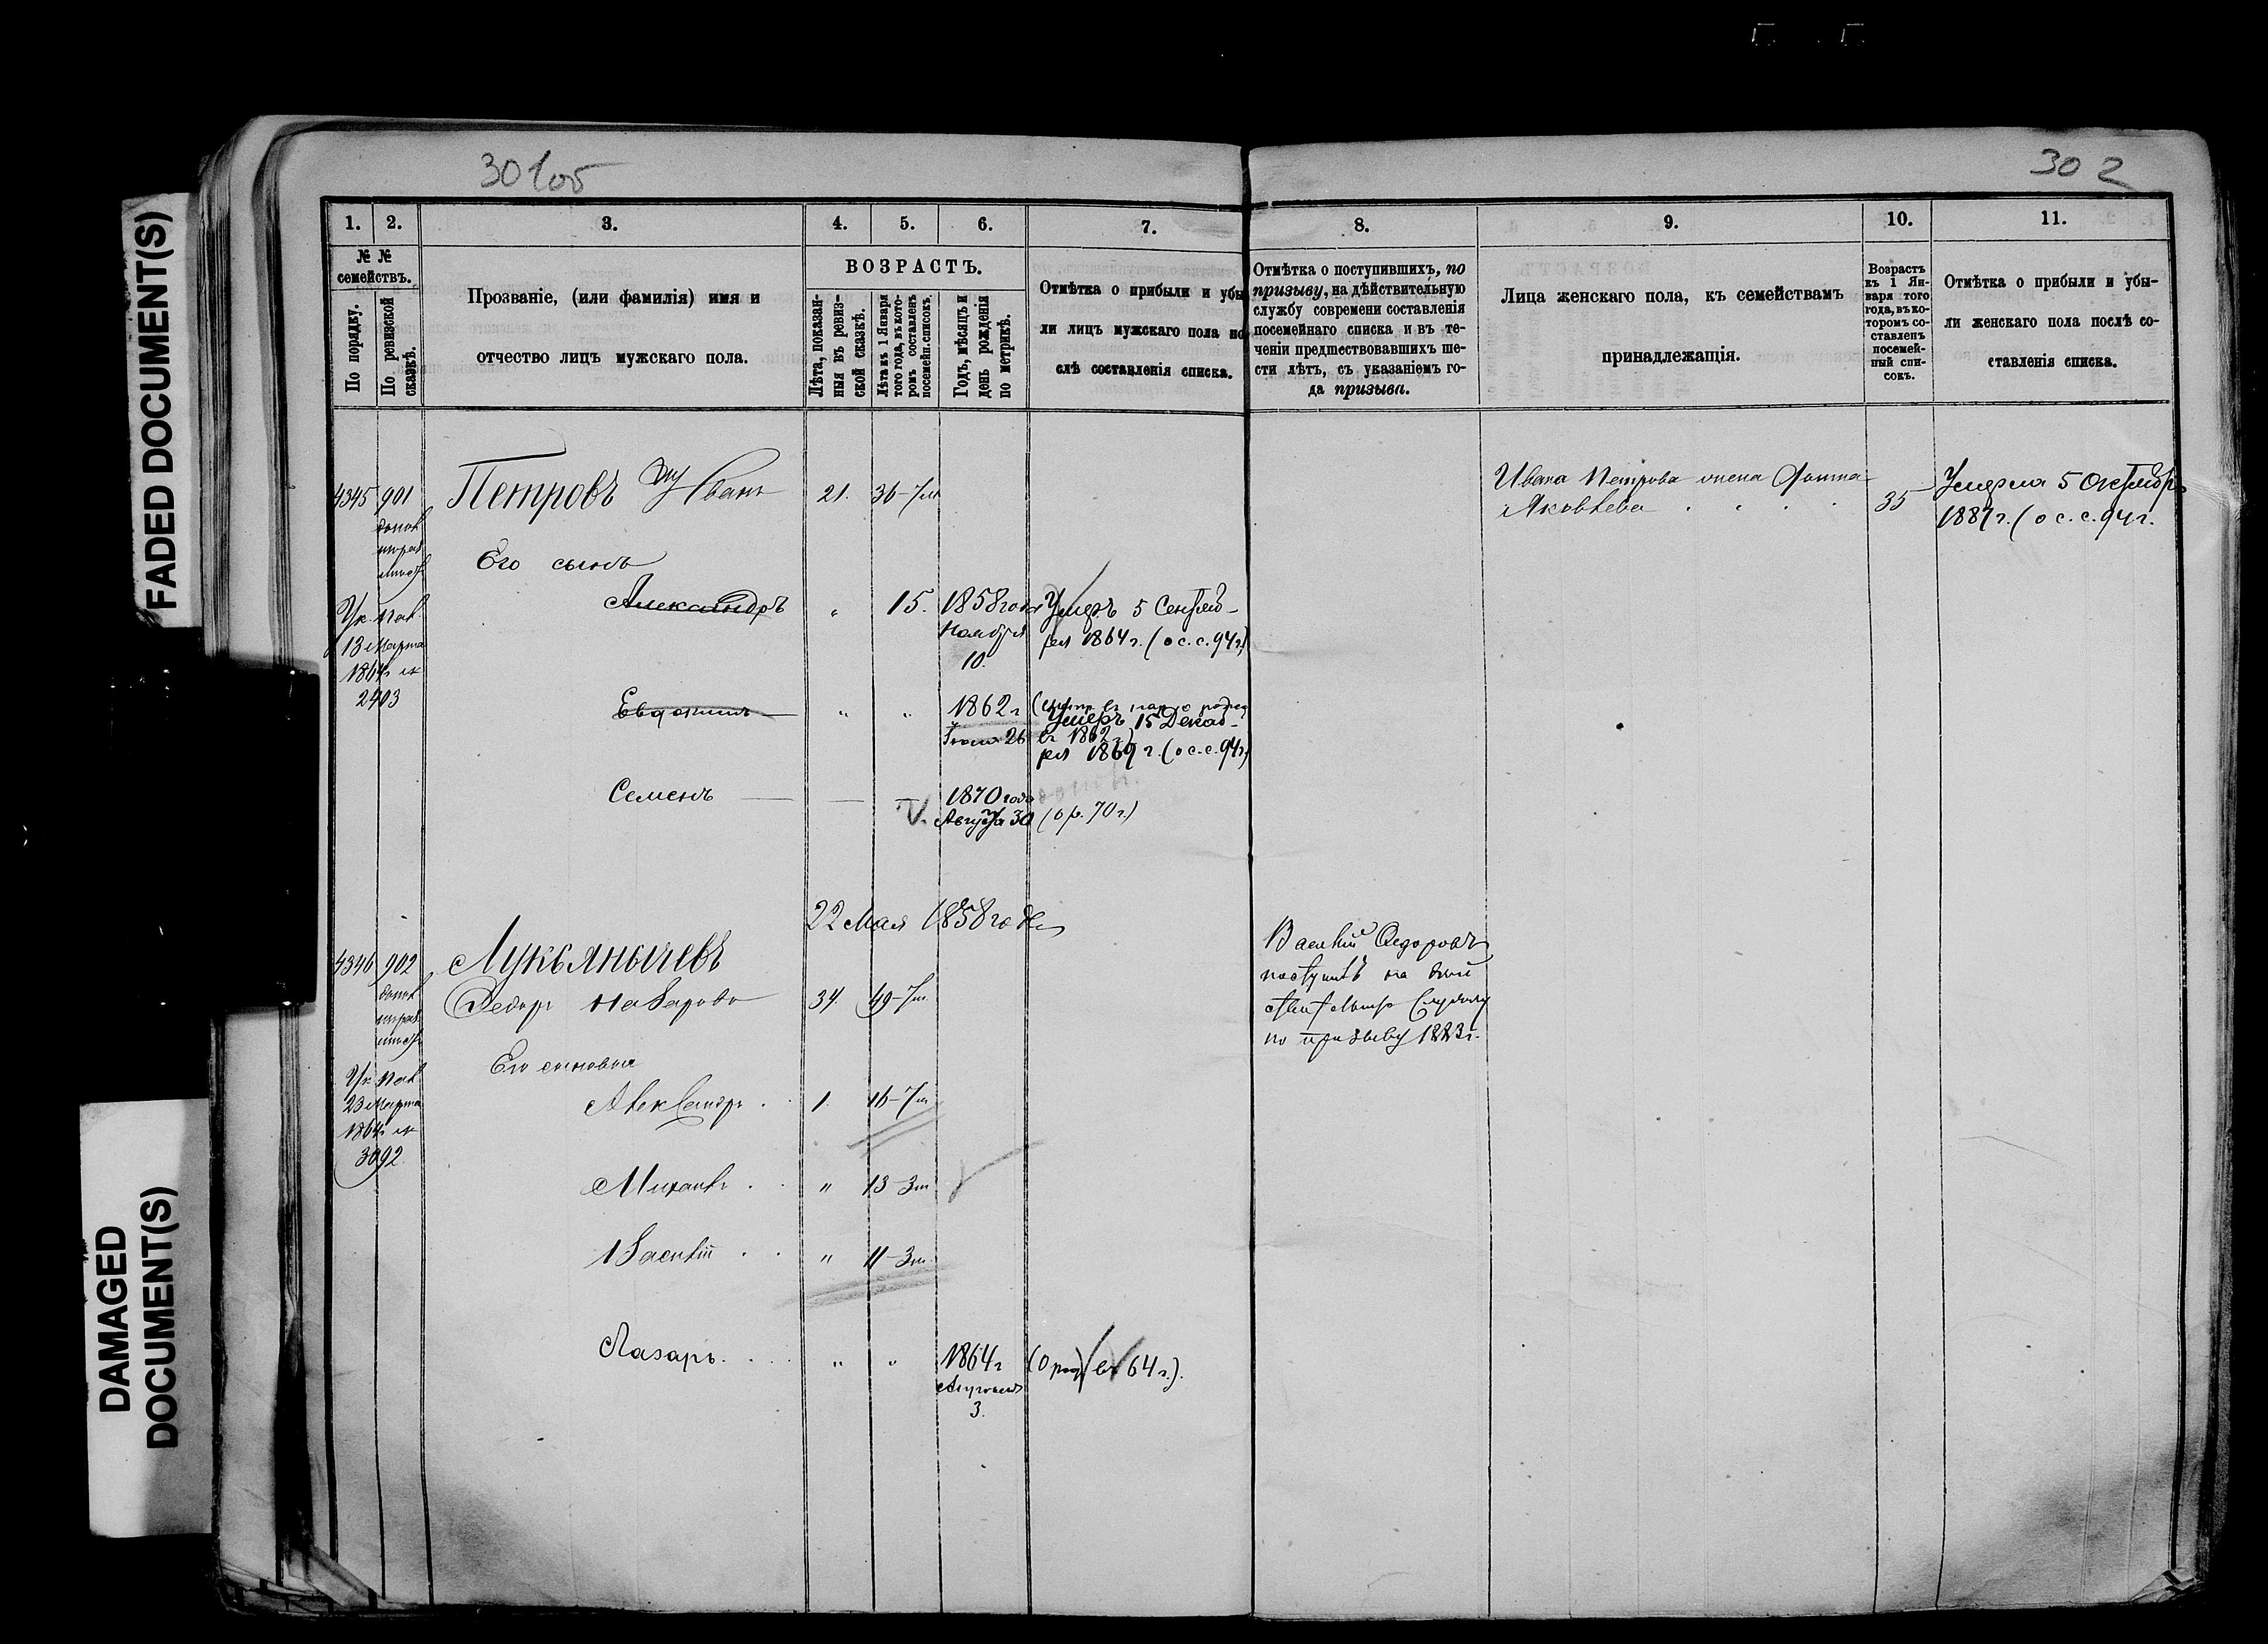 FADED DOCUMENT(S)
DAMAGED
DOCUMENT(S)
301 об
302
1. 2. 3. 4. 5. 6. 7. 8. 9. 10. 11.
№ №
семействъ.
По порядку.
По ревизской
сказкѣ.
Прозваніе, (или фамилія) имя и
отчество лицъ мужскаго пола.
ВОЗРАСТЪ.
Лѣта, показан-
ныя въ ревиз-
ской сказкѣ.
Лѣта къ 1 Января
того года, въ кото-
ромъ составленъ
посемейн. списокъ.
Годъ, мѣсяцъ и
день рожденія
по метрикѣ.
Отмѣтка о прибыли и убы
ли лицъ мужскаго пола по
слѣ составленія списка.
Отмѣтка о поступившихъ, по
призыву, на дѣйствительную
службу современи составленія
посемейнаго списка и въ те-
ченіи предшествовавшихъ ше-
сти лѣтъ, съ указаніемъ го-
да призыва.
Лица женскаго пола, къ семействамъ
принадлежащія.
Возрастъ
къ 1 Ян-
варя того
года, въ ко-
торомъ со-
ставленъ
посемей-
ный спи-
сокъ.
Отмѣтка о прибыли и убы-
ли женскаго пола послѣ со-
ставленія списка.
4345 901 Петровъ Иванъ 21. 36-7м
Ивана Петрова жена
Яковлева 35
Умерла 5 Октябр
1881 г. (о с. с. 94 г.
Его сынъ
Александръ " 15. 1858 года
Ноября
10.
Умеръ 5 Сентяб-
ря 1864 г. (о с. с. 94 г.)
13 Марта
1864 г №
2403
Евдокимъ " " 1862 г
26
Умеръ 15 Декаб-
въ 1862 г.)
ря 1869 г. (о с. с. 94 г.)
Семенъ — — — 1870 года
Августа 30 (о р. 70 г.)
22 Мая 1858 года
4346 902 Лукьянычевъ
Федоръ Назарова 34. 49-7м.
Василій Федоровъ
поступилъ на дѣй
ствительную службу
по призыву 1883 г.
Его сыновья
23 Марта
1864 г №
3092
Александръ . 1. 16-7м
Михаилъ . " 13-3м
Василій . . " 11-3м.
Лазарь. . . " " 1864 г (о род. въ 64 г.).
3.